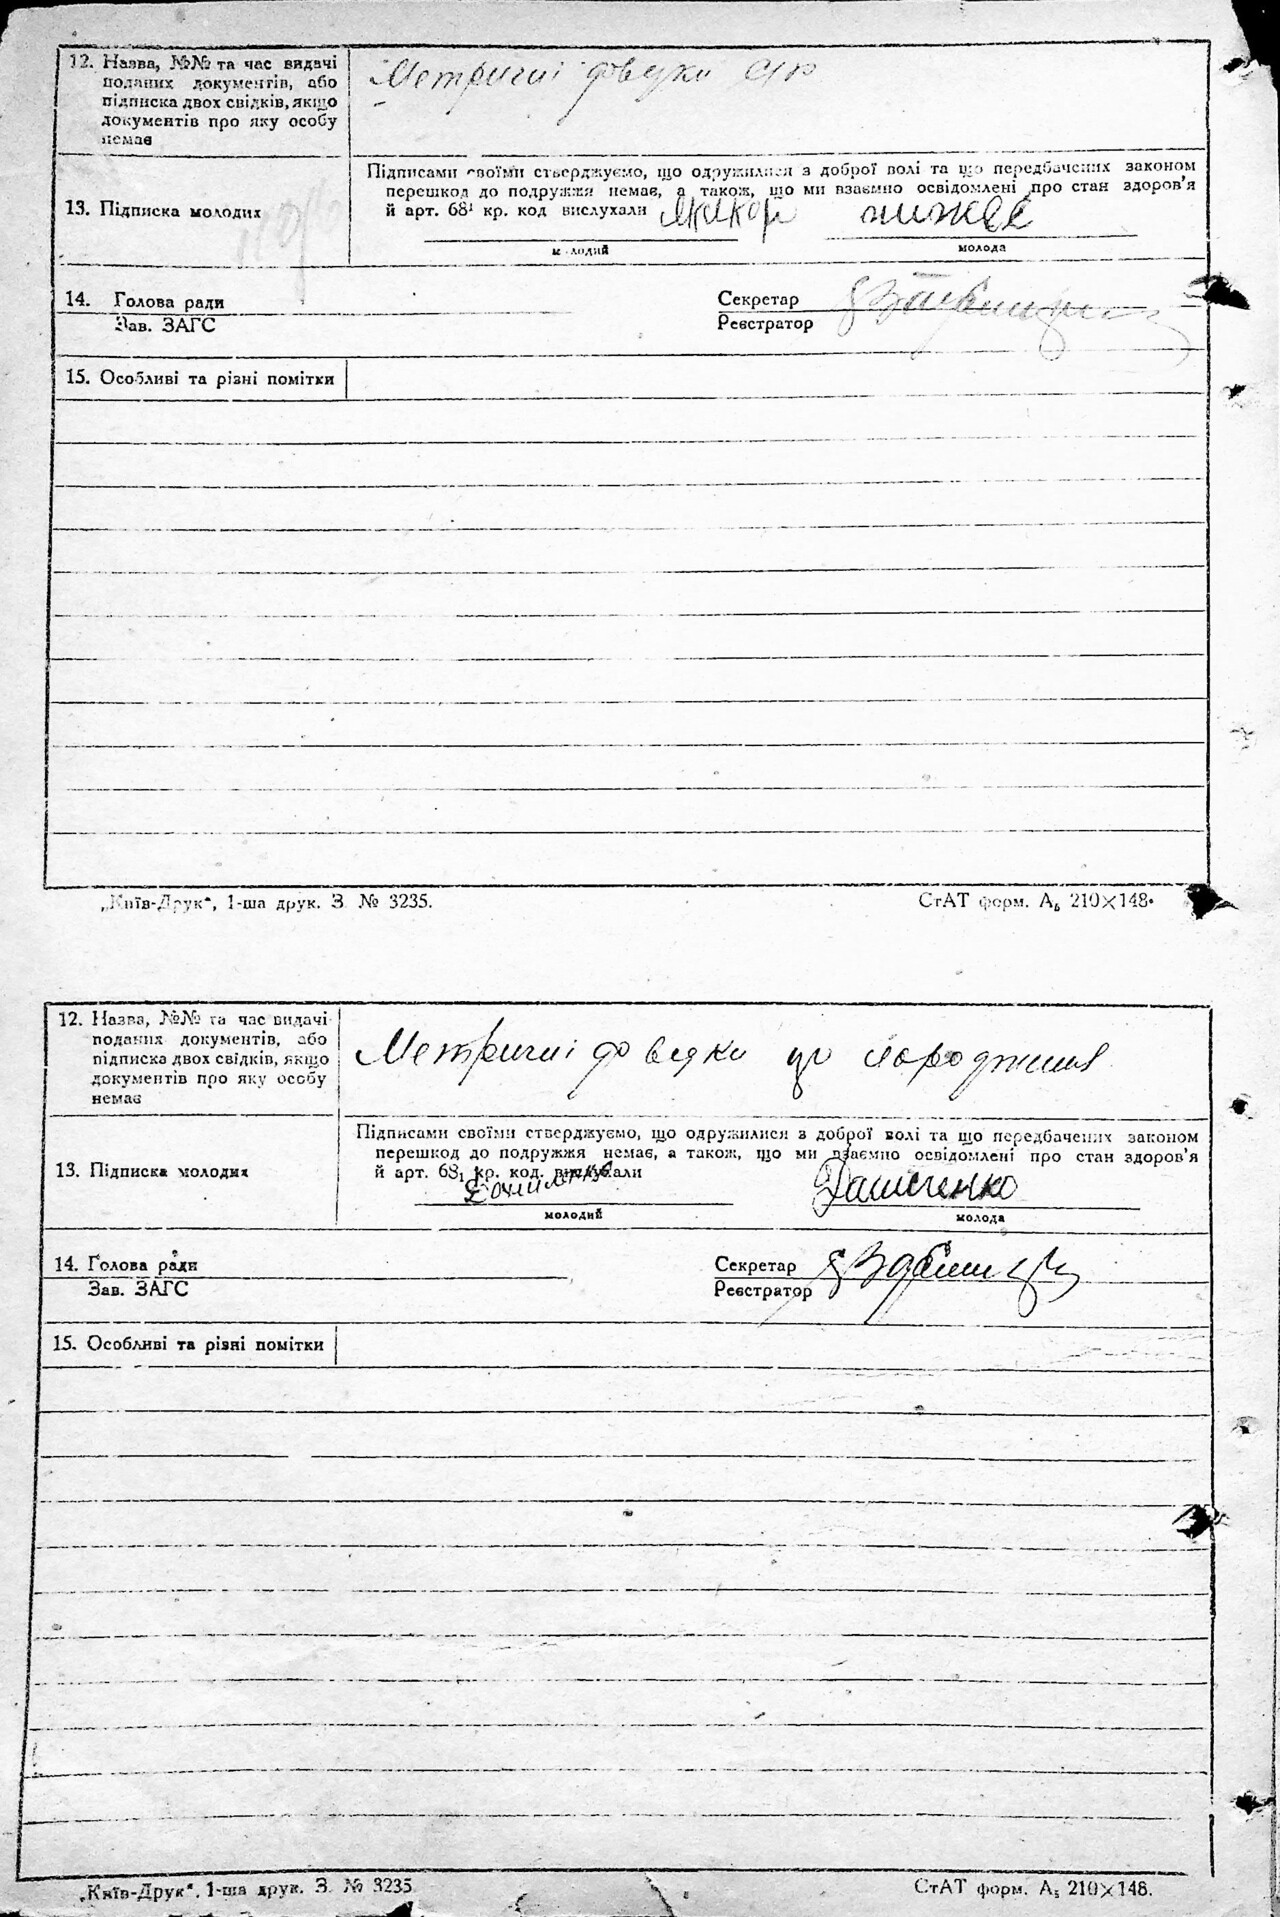 12. Назва, №№ та час видачі
поданих документів, або
підписка двох свідків, якщо
документів про яку особу
немає
Метричні довідки
Підписами своїми стверджуємо, що одружилися з доброї волі та що передбачених законом
перешкод до подружжя немає, а також, що ми взаємно освідомлені про стан здоров'я
13. Підписка молодих
й арт. 68¹ кр. код вислухали
молодий
молода
14. Голова ради
Секретар
Зав. ЗАГС
Реєстратор
15. Особливі та різні помітки
„Київ-Друк“, 1-ша друк. З. № 3235.
СтАТ форм. А₅ 210×148.
12. Назва, №№ та час видачі
поданих документів, або
підписка двох свідків, якщо
документів про яку особу
немає
Метричні довідки
Підписами своїми стверджуємо, що одружилися з доброї волі та що передбачених законом
перешкод до подружжя немає, а також, що ми взаємно освідомлені про стан здоров'я
13. Підписка молодих
й арт. 68₁ кр. код. вислухали
молодий
молода
14. Голова ради
Секретар
Зав. ЗАГС
Реєстратор
15. Особливі та різні помітки
„Київ-Друк“. 1-ша друк. З. № 3235
СтАТ форм. А₅ 210×148.